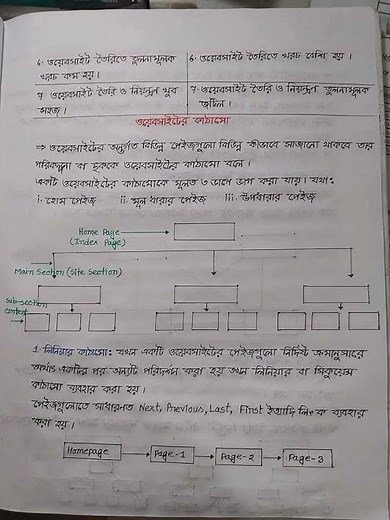 ৬· ওয়েবসাইট তৈরিতে তুলনামূলক খরচ কম হয়।
৬· ওয়েবসাইট তৈরিতে খরচ বেশি হয়।
৭· ওয়েবসাইট তৈরি ও নিয়ন্ত্রণ খুব সহজ।
৭·ওয়েবসাইট তৈরি ও নিয়ন্ত্রণ তুলনামূলক জটিল।
ওয়েবসাইটের কাঠামো
⇒ ওয়েবসাইটের অন্তর্গত বিভিন্ন পেইজগুলো বিভিন্ন কীভাবে সাজানো থাকবে তার
পরিকল্পনা বা ছককে ওয়েবসাইটের কাঠামো বলে।
একটি ওয়েবসাইটের কাঠামোকে মূলত ৩ ভাগে ভাগ করা যায়। যথাঃ
i· হোম পেইজ ii· মূল ধারার পেইজ iii· উপধারার পেইজ
Home Page
(Index Page)
Main Section (Site Section)
Sub-section
content
1· লিনিয়ার কাঠামো: যখন একটি ওয়েবসাইটের পেইজগুলো নির্দিষ্ট ক্রমানুসারে
অর্থাৎ একটির পর অন্যটি পরিদর্শন করা হয় তখন লিনিয়ার বা সিকুয়েন্স
কাঠামো ব্যবহার করা হয়।
পেইজগুলোতে সাধারনত Next, Previous, Last, First ইত্যাদি লিংক ব্যবহার
করা হয়।
Homepage Page-1 Page-2 Page-3